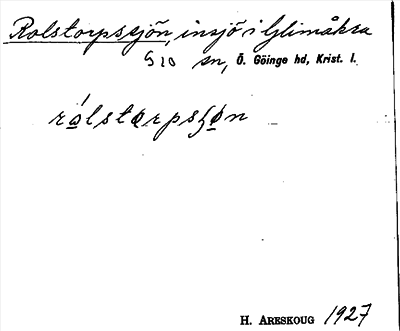 Rolstorpssjön, insjö i Glimåkra
S 10 sn, Ö. Göinge hd, Krist. l.
rålstårpsʃø̀n
H. ARESKOUG 1927